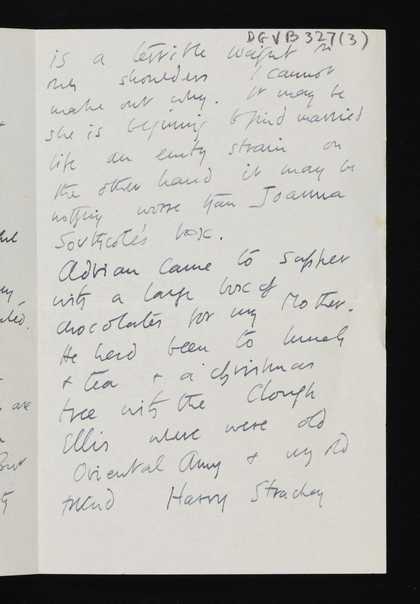 DGVB 327(3)
is a terrible weight on
my shoulders I cannot
make out why. It may be
she is beginning to find married
life an empty strain on
the other hand it may be
nothing worse than Joanna
Southcote's box.
Adrian came to supper
with a large box of
chocolates for my Mother.
He had been to lunch
& tea & a christmas
tree with the Clough
Ellis where were old
Oriental Amy & my old
friend Harry Strachey